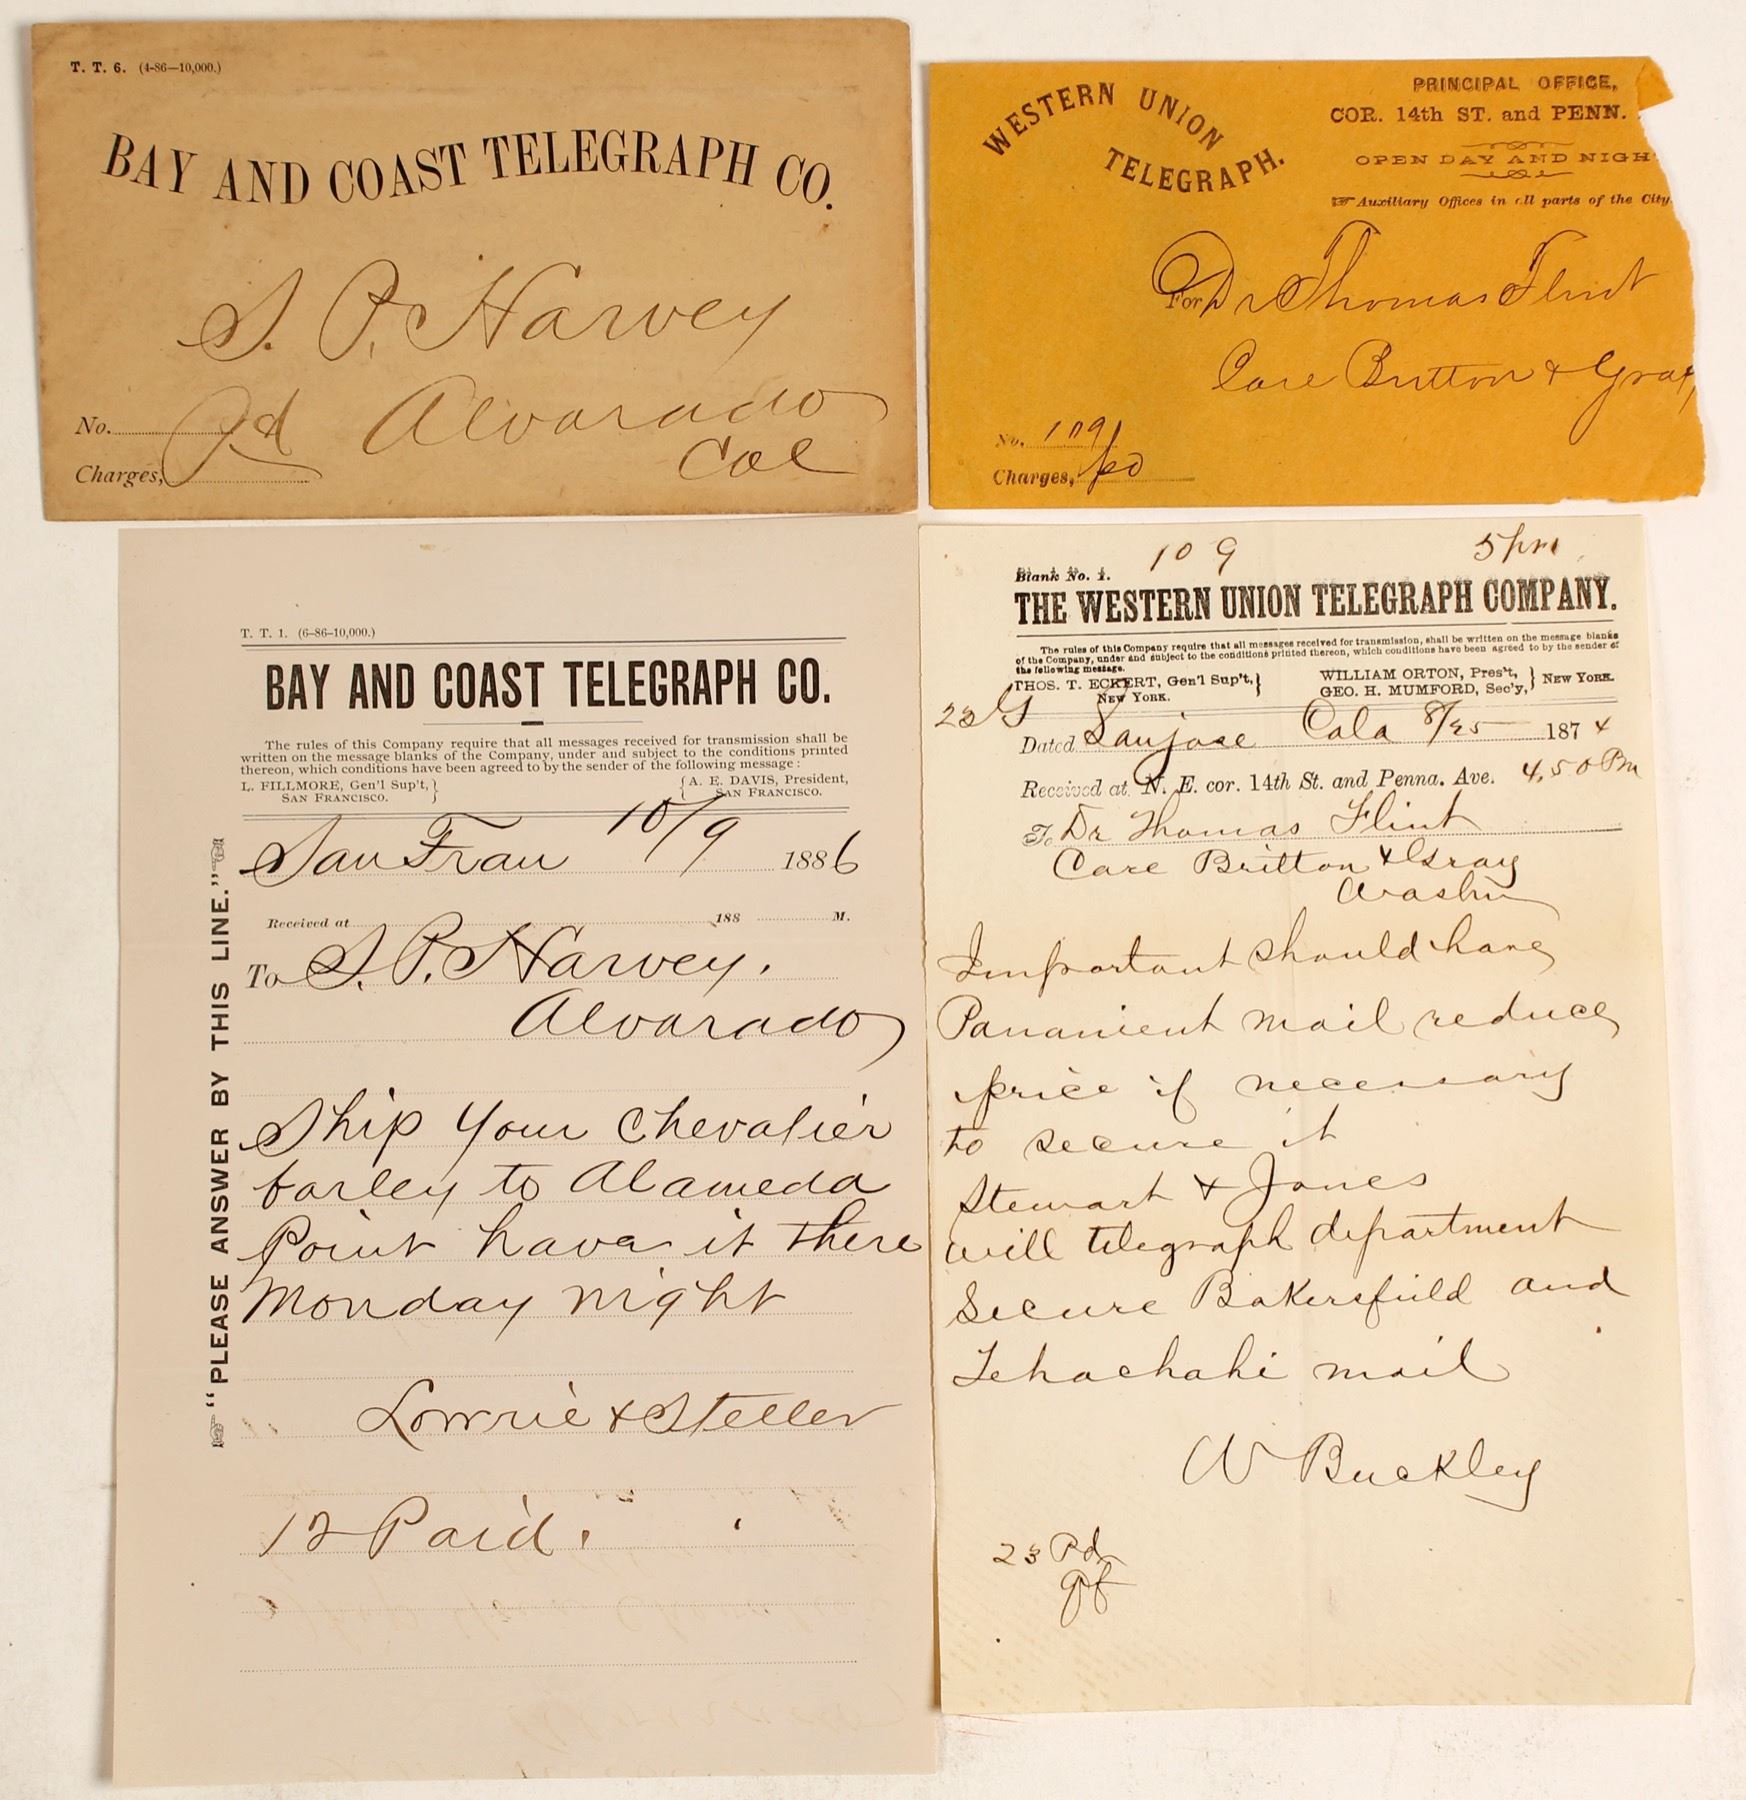 T. T. 6. (4-86—10,000.)
BAY AND COAST TELEGRAPH CO.
S. P. Harvey
Alvarado
Cal
No.
Pd
Charges,
WESTERN UNION
TELEGRAPH.
PRINCIPAL OFFICE,
COR. 14th ST. and PENN.
OPEN DAY AND NIGH
☞ Auxiliary Offices in all parts of the City.
For Dr Thomas Flint
Care Britton & Gray
No. 109
Charges, pd
T. T. 1. (6-86-10,000.)
BAY AND COAST TELEGRAPH CO.
The rules of this Company require that all messages received for transmission shall be
written on the message blanks of the Company, under and subject to the conditions printed
thereon, which conditions have been agreed to by the sender of the following message:
L. FILLMORE, Gen'l Sup't,
SAN FRANCISCO.
A. E. DAVIS, President,
SAN FRANCISCO.
San Fran 10/9 1886
Received at 188 M.
To S. P. Harvey.
Alvarado
Ship your Chevalier
barley to Alameda
Point have it there
Monday night
Lowrie & Steller
12 Paid.
☞ "PLEASE ANSWER BY THIS LINE." ☜
109 5 pm
Blank No. 1.
THE WESTERN UNION TELEGRAPH COMPANY.
The rules of this Company require that all messages received for transmission, shall be written on the message blanks
of the Company, under and subject to the conditions printed thereon, which conditions have been agreed to by the sender of
the following message.
THOS. T. ECKERT, Gen'l Sup't,
NEW YORK.
WILLIAM ORTON, Pres't,
GEO. H. MUMFORD, Sec'y,
NEW YORK.
23
Dated San jose Cala 8/25 1874
Received at N. E. cor. 14th St. and Penna. Ave. 4,50 Pm
To Dr Thomas Flint
Care Britton & Gray
Washn
Important should have
Panamient mail reduce
price if necessary
to secure it
Stewart & Jones
will telegraph department
Secure Bakersfield and
Tehachahi mail
W Buckley
23 Pd